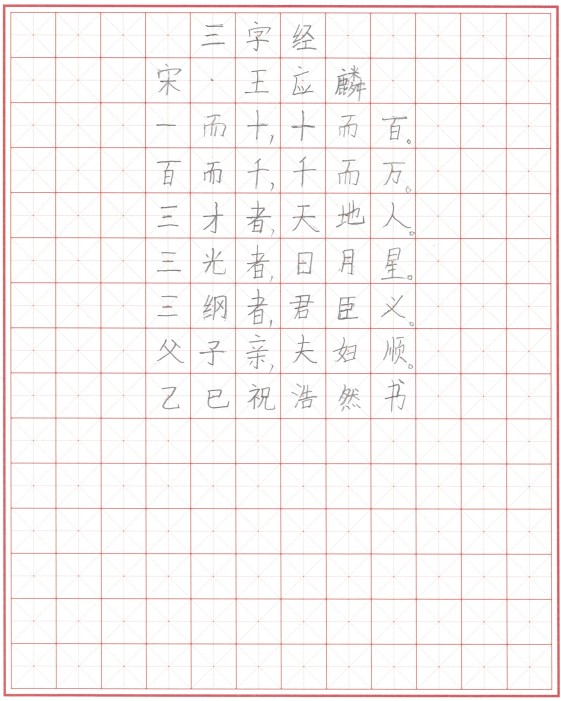 三字经
宋·王应麟
一而十,十而百。
百而千,千而万。
三才者,天地人。
三光者,日月星。
三纲者,君臣义。
父子亲,夫妇顺。
乙巳祝浩然书